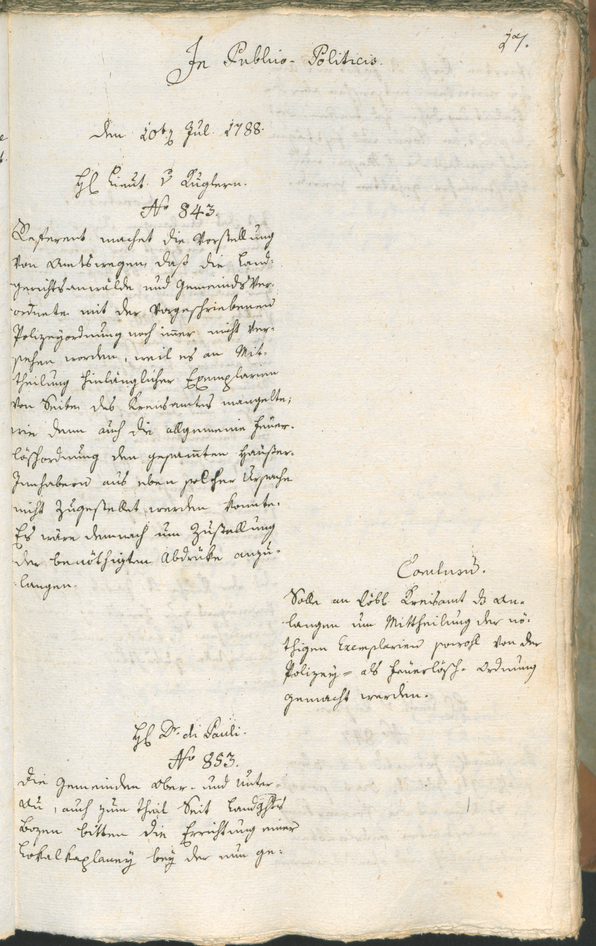 27.
In Publico-Politicis.
den 10t Jul. 1788.
H Lieut. v Kuglern.
No 843.
Referent machet die Vorstellung
von Amtswegen, daß die Land-
gerichtsanwälde und Gemeinds Ver-
ordnete mit der vorgeschriebenen
Polizeyordnung noch immer nicht ver-
sehen worden, weil es an Mit-
theilung hinlänglicher Exemplarien
von Seite des Kreisamtes mangelte;
wie denn auch die allgemeine Feuer-
löschordnung den gesamten Häuser-
Innhabern aus eben solcher Ursache
nicht zugestellet werden konnte.
Es wäre demnach um Zustellung
der benöthigten Abdrüke anzu-
langen.
Conclusum.
Solle an löbl. Kreisamt das An-
langen um Mittheilung der nö-
thigen Exemplarien sowohl von der
Polizey- als Feuerlösch-Ordnung
gemacht werden.
H Dr. di Pauli.
No 853.
Die Gemeinden Ober- und Unter-
Au, auch zum Theil Seit Landgchts
Bozen bitten die Errichtung einer
Lokalkaplaney bey der nun ge-